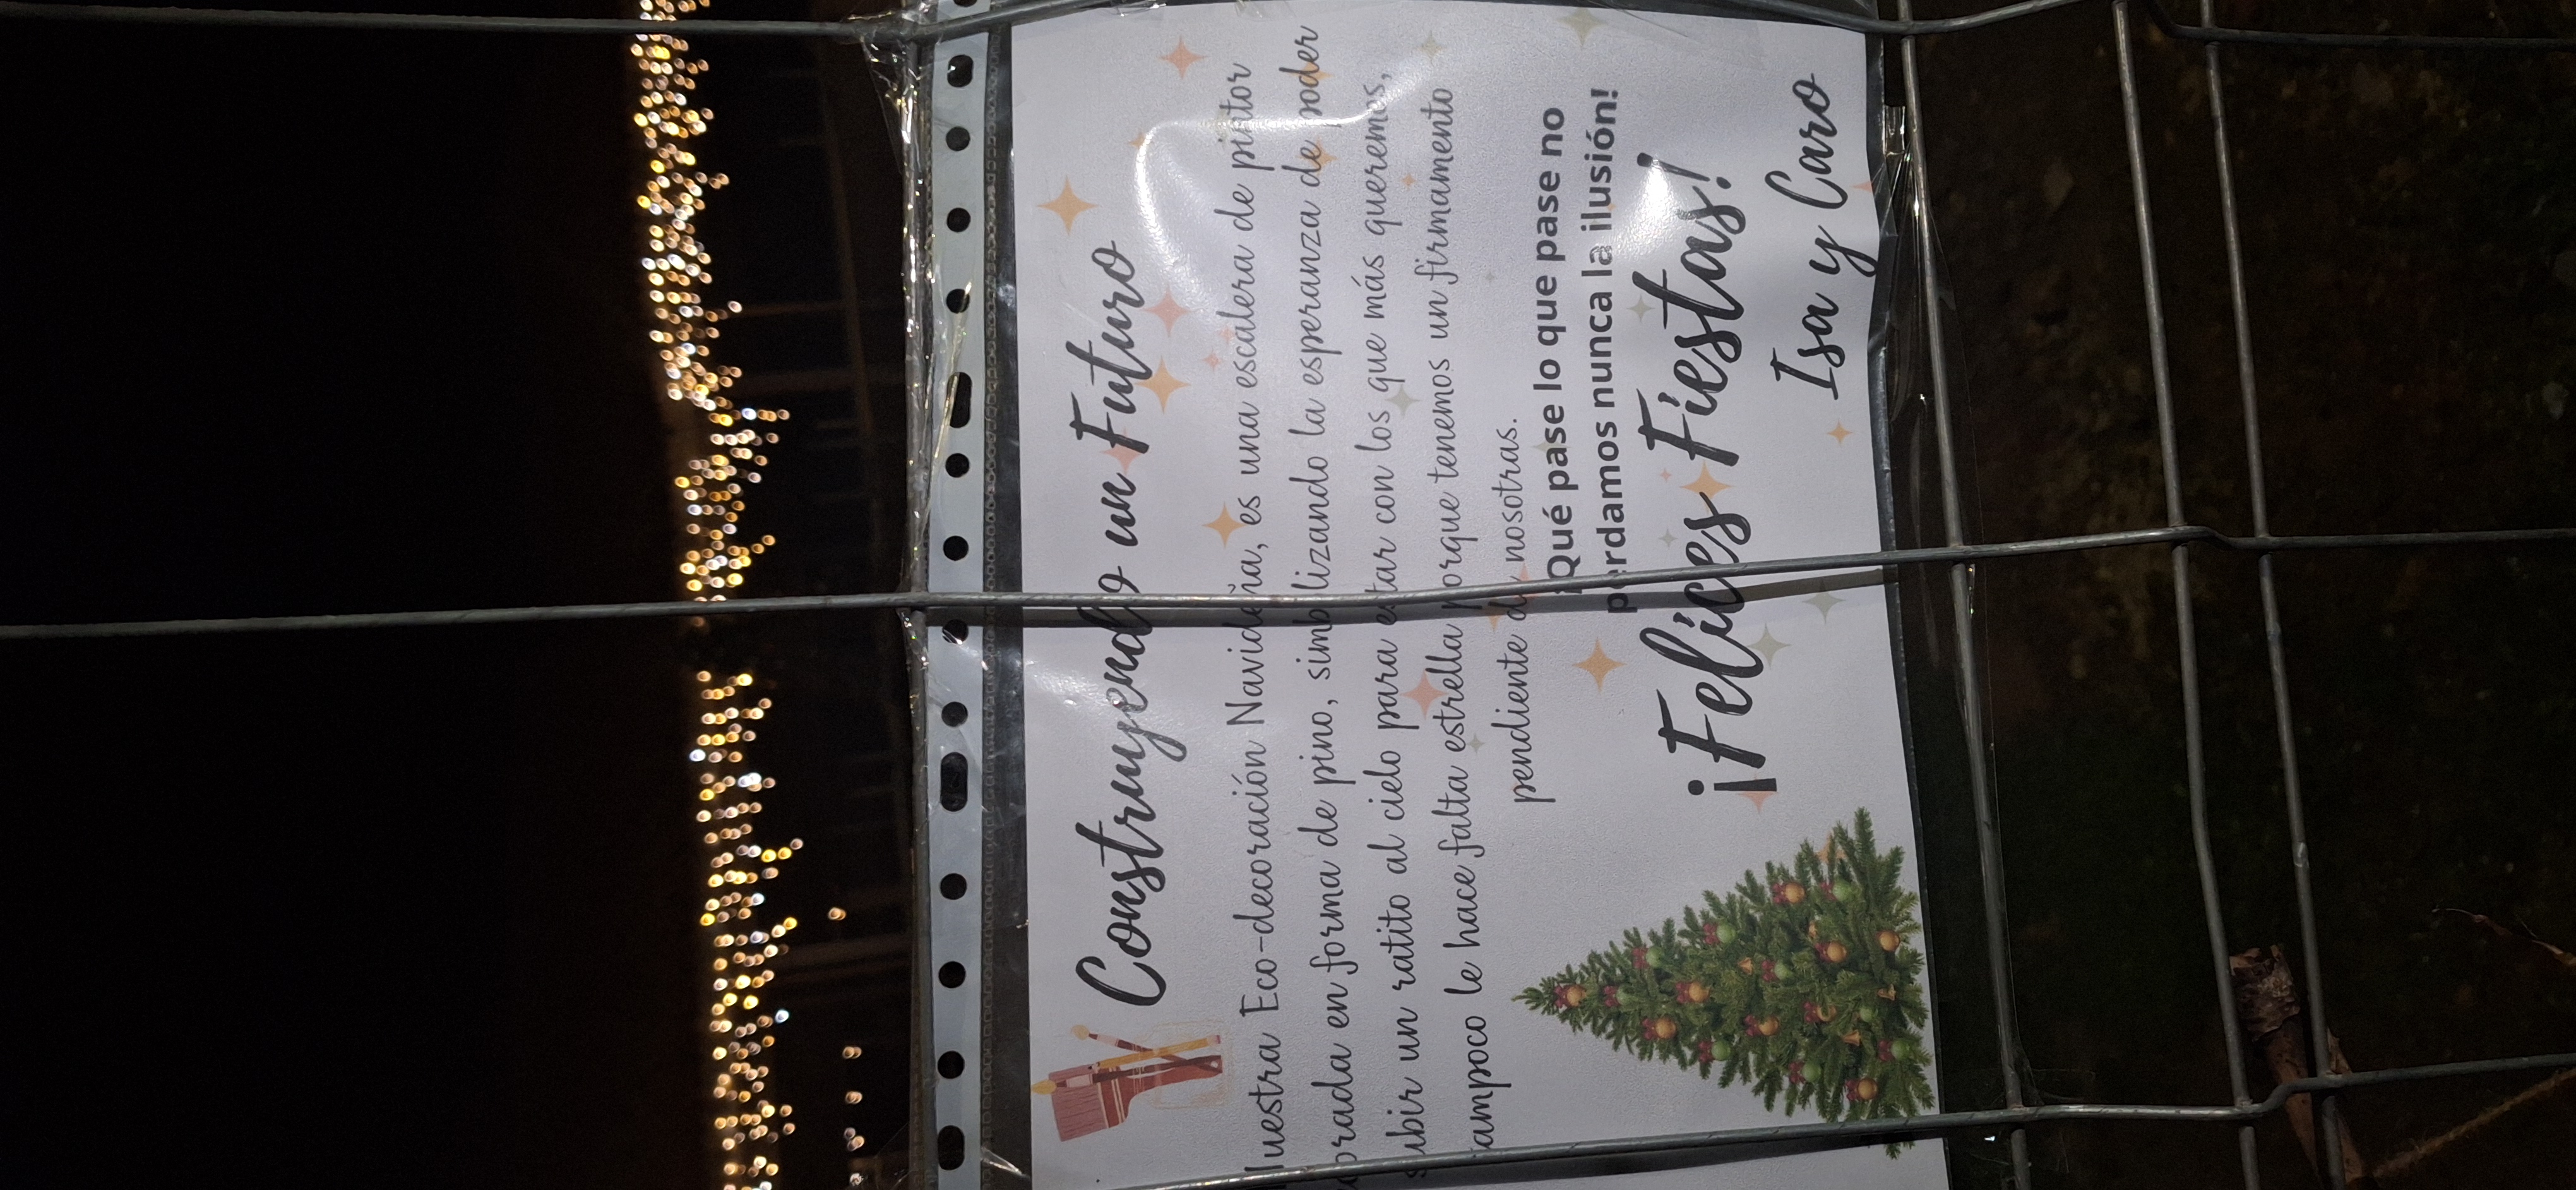 Construyendo un Futuro
Nuestra Eco-decoración Navideña, es una escalera de pintor
decorada en forma de pino, simbolizando la esperanza de poder
subir un ratito al cielo para estar con los que más queremos,
tampoco le hace falta estrella porque tenemos un firmamento
pendiente de nosotras.
¡Qué pase lo que pase no
perdamos nunca la ilusión!
¡Felices Fiestas!
Isa y Caro